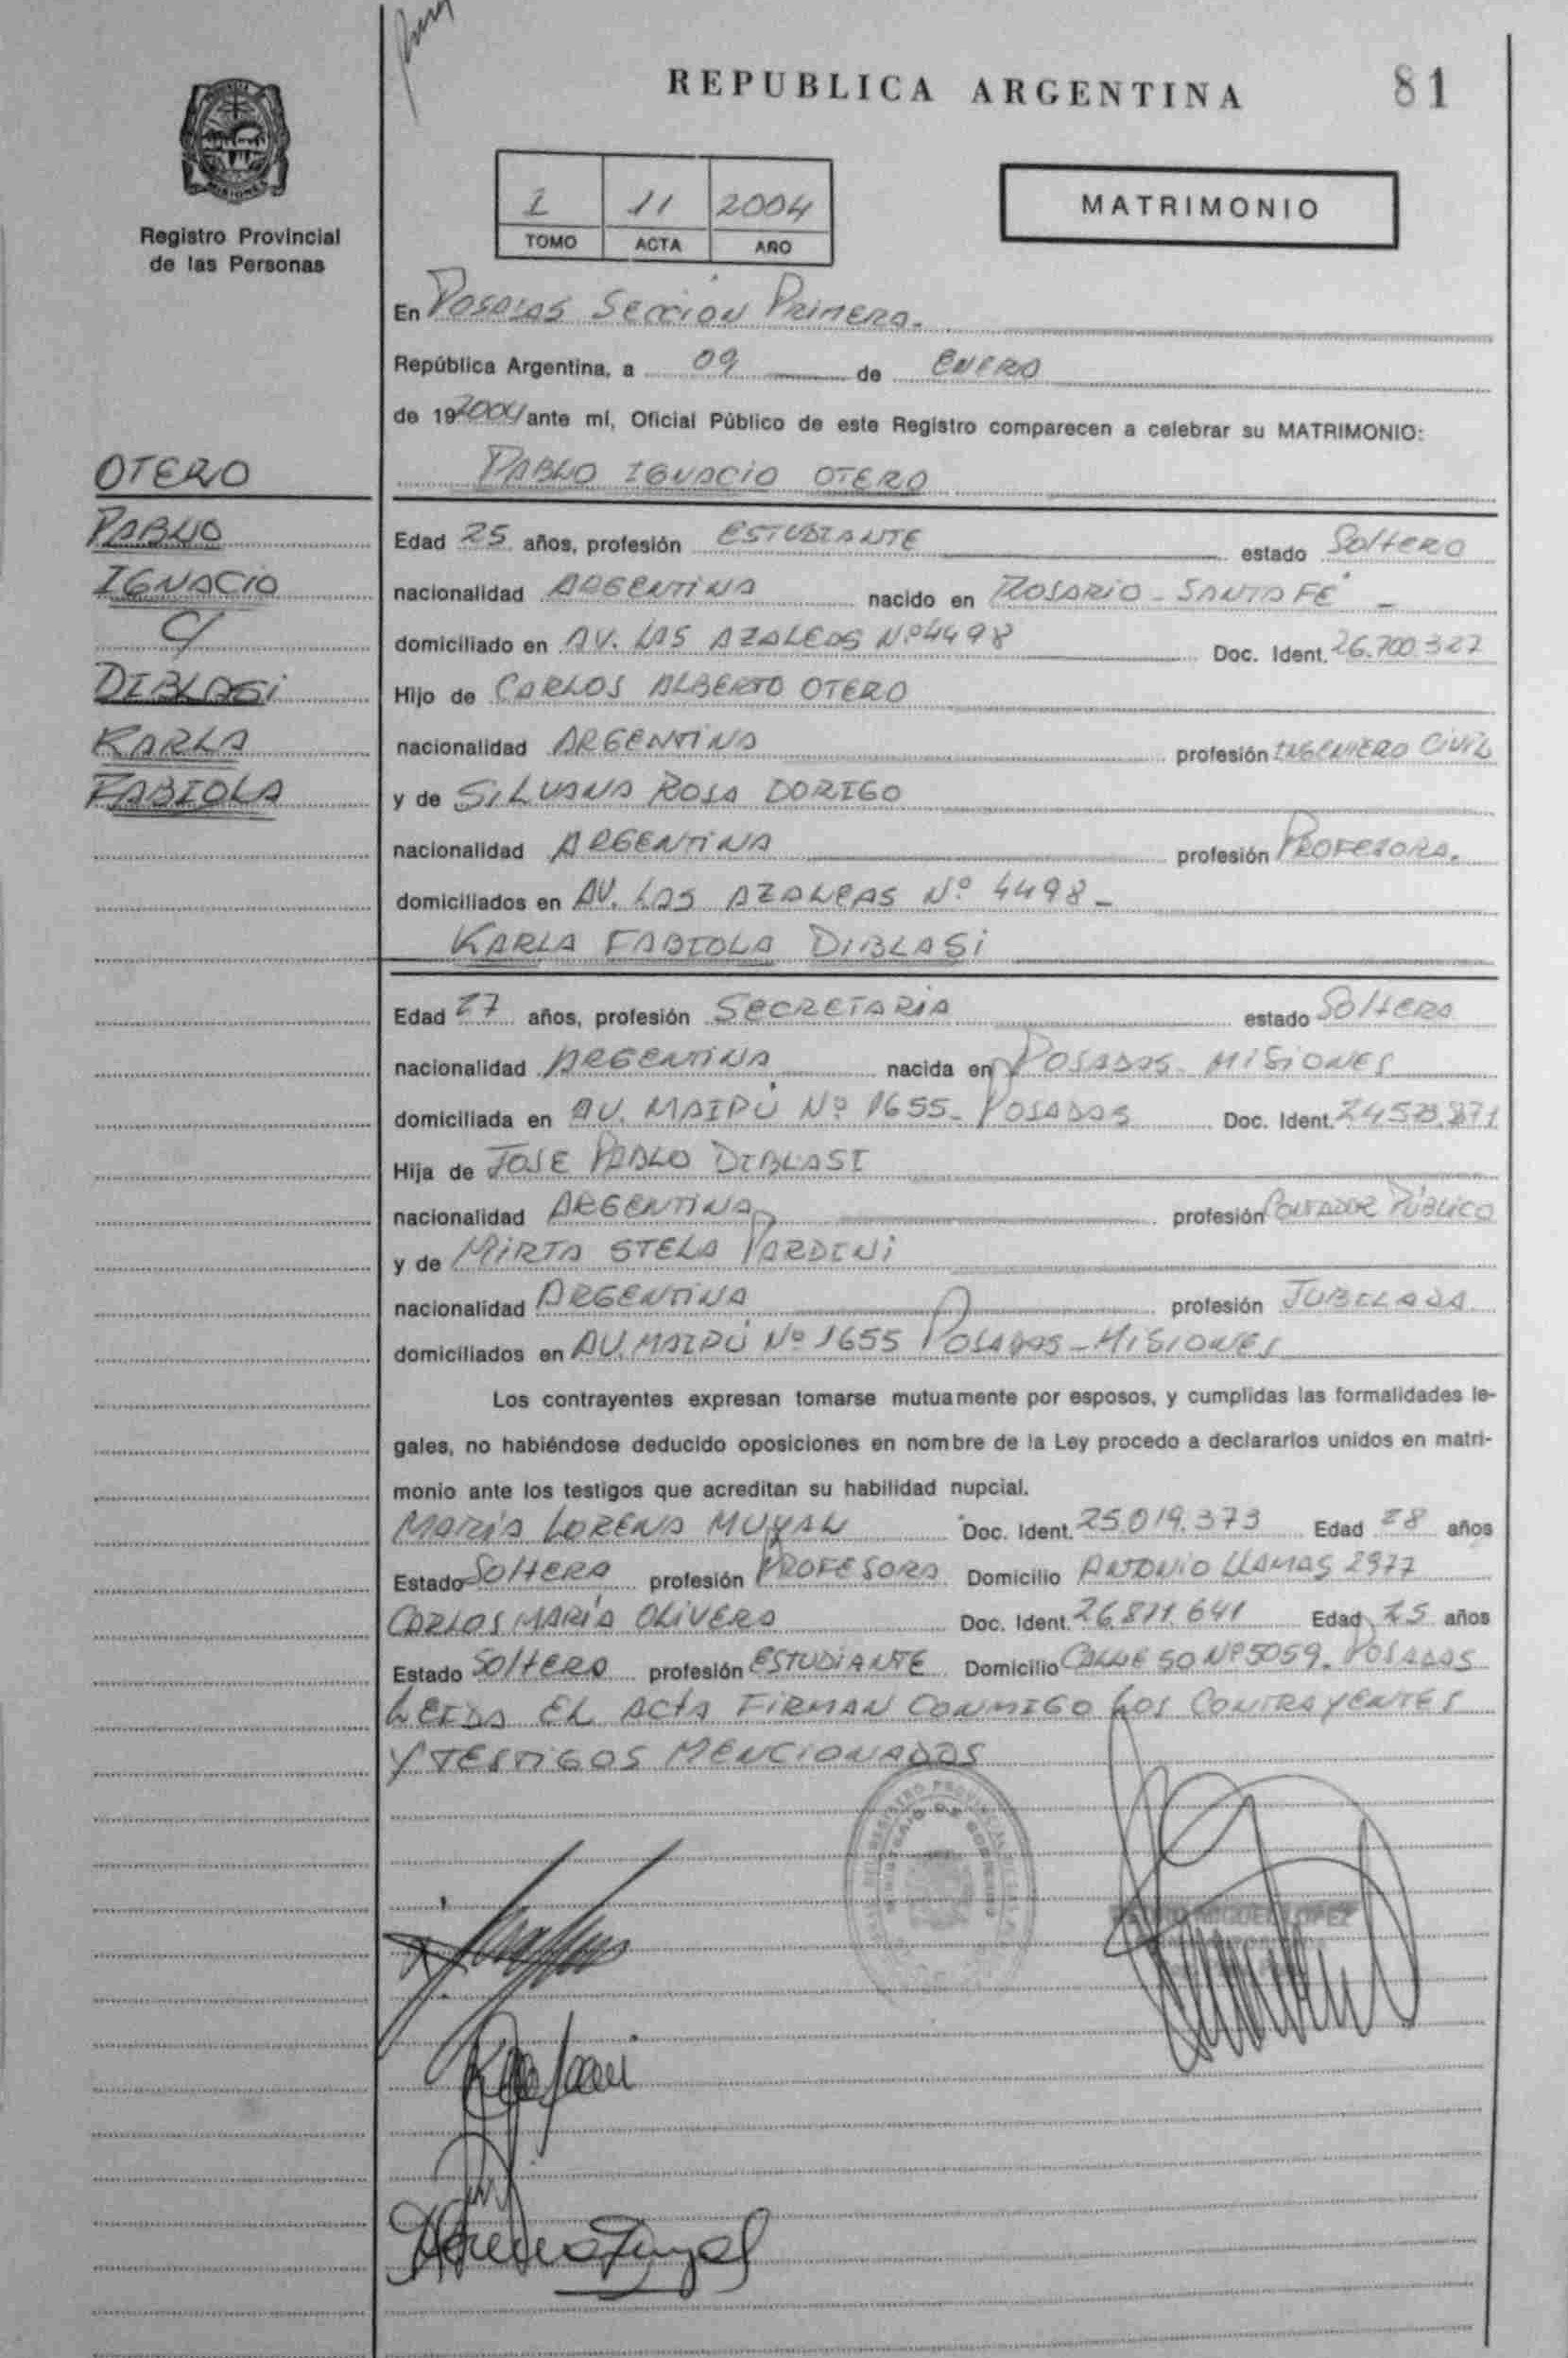 REPUBLICA ARGENTINA
81
MISIONES
Registro Provincial
de las Personas
1 11 2004
TOMO ACTA AÑO
MATRIMONIO
En POSADAS SECCIÓN PRIMERA.
República Argentina, a 09 de ENERO
de 19 2004 ante mí, Oficial Público de este Registro comparecen a celebrar su MATRIMONIO:
PABLO IGNACIO OTERO
OTERO
PABLO
IGNACIO
C/
DIBLASI
KARLA
FABIOLA
Edad 25 años, profesión ESTUDIANTE estado SOLTERO
nacionalidad ARGENTINA nacido en ROSARIO - SANTA FÉ -
domiciliado en AV. LAS AZALEAS Nº 4498 Doc. Ident. 26.700.327
Hijo de CARLOS ALBERTO OTERO
nacionalidad ARGENTINA profesión INGENIERO CIVIL
y de SILVANA ROSA DORIGO
nacionalidad ARGENTINA profesión PROFESORA.
domiciliados en AV. LAS AZALEAS Nº 4498 -
KARLA FABIOLA DIBLASI
Edad 27 años, profesión SECRETARIA estado SOLTERA
nacionalidad ARGENTINA nacida en POSADAS MISIONES
domiciliada en AV. MAIPÚ Nº 1655 - POSADAS Doc. Ident.
Hija de JOSE PABLO DIBLASI
nacionalidad ARGENTINA profesión CONTADOR PÚBLICO
y de MIRTA STELA PARDINI
nacionalidad ARGENTINA profesión JUBILADA
domiciliados en AV. MAIPÚ Nº 1655 POSADAS - MISIONES
Los contrayentes expresan tomarse mutuamente por esposos, y cumplidas las formalidades le-
gales, no habiéndose deducido oposiciones en nombre de la Ley procedo a declararlos unidos en matri-
monio ante los testigos que acreditan su habilidad nupcial.
MARÍA LORENA MUYAL Doc. Ident. 25.019.373 Edad 28 años
Estado SOLTERA profesión PROFESORA Domicilio ANTONIO LLAMAS 2977
CARLOS MARÍA OLIVERA Doc. Ident. 26.871.641 Edad 25 años
Estado SOLTERO profesión ESTUDIANTE Domicilio CALLE 50 Nº 5059. POSADAS
LEIDA EL ACTA FIRMAN CONMIGO LOS CONTRAYENTES
Y TESTIGOS MENCIONADOS
REGISTRO PROVINCIAL DE LAS
MINISTERIO DE GOBIERNO
MIGUEL LOPEZ